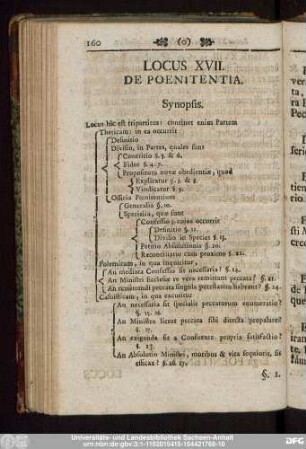 160 (o)
LOCUS XVII.
DE POENITENTIA.
Synopsis.
Locus hic est tripartitus: continet enim Partem
Theticam: in ea occurrit
Definitio
Divisio, in Partes, quales sunt
Contritio §. 3. & 6.
Fides §. 4. 7.
Propositum novæ obedientiæ, quod
Explicatur §. 5. & 8.
Vindicatur §. 9.
Officia Poenitentium
Generalia §. 10.
Specialia, quæ sunt
Confessio; cujus occurrit
Definitio §. 11.
Divisio et Species §. 13.
Petitio Absolutionis §. 20.
Reconciliatio cum proximo §. 21.
Polemicam, in qua inquiritur,
An mediata Confessio sit necessaria? §. 14.
An Ministri Ecclesiæ re vera remittant peccata? §. 21.
An remittendi peccata singula potestatem habeant? §. 24.
Casuisticam, in qua excutitur
An necessaria sit specialis peccatorum enumeratio?
§. 15. 16.
An Ministro liceat peccata sibi directa propalare?
§. 17.
An exigenda sit a Confitente propria satisfactio?
§. 23.
An Absolutio Ministri, moribus & vita sequioris, sit
efficax? §. 26. 27.
§. 1.
Universitäts- und Landesbibliothek Sachsen-Anhalt
urn:nbn:de:gbv:3:1-1192015415-154421769-16
DFG